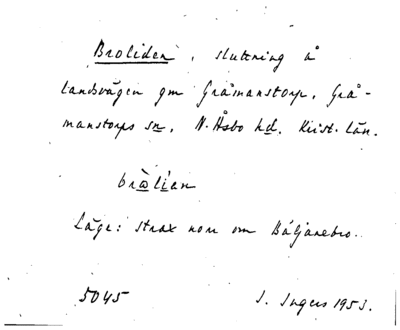 Broliden, sluttning å
landsvägen gm Gråmanstorp, Grå-
manstorps sn, N. Åsbo hd. Krist. län.
Läge: strax norr om Bäljanebro.
5045 I. Ingers 1953.